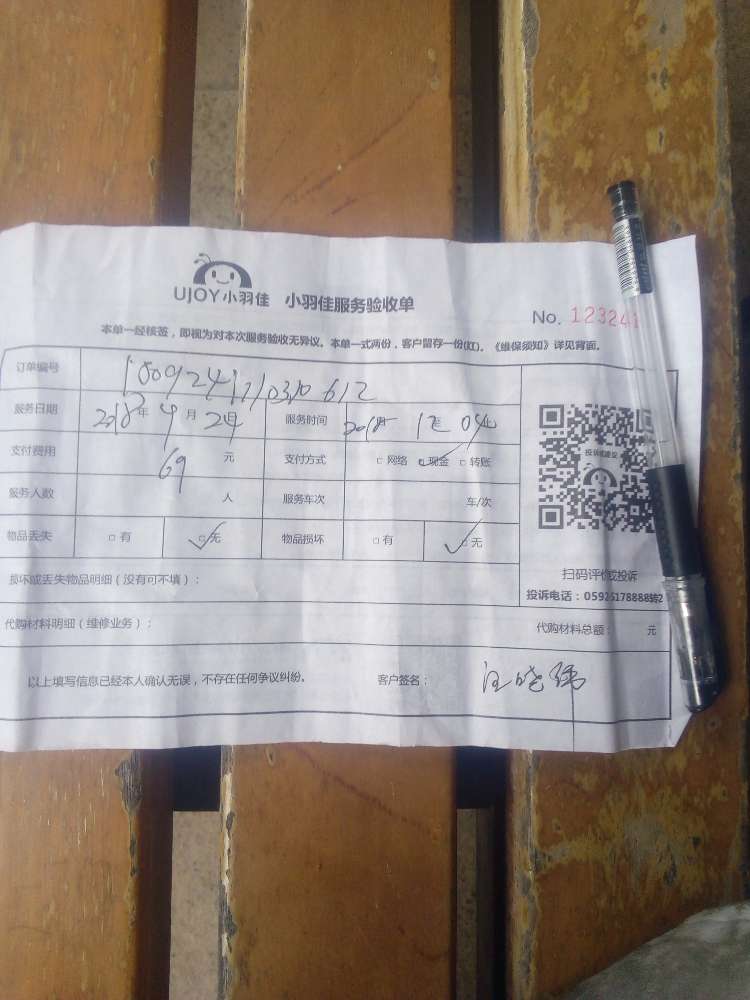 UJOY小羽佳 小羽佳服务验收单
No. 123241
本单一经核签,即视为对本次服务验收无异议。本单一式两份,客户留存一份(红)。《维保须知》详见背面。
订单编号
服务日期 2018年 9月 24日 服务时间
支付费用 69 元 支付方式 □网络 ☑现金 □转账
服务人数 人 服务车次 车/次
物品丢失 □有 ☑无 物品损坏 □有 ☑无
投诉或建议
扫码评价或投诉
投诉电话:05926178888转2
损坏或丢失物品明细(没有可不填):
代购材料明细(维修业务): 代购材料总额: 元
以上填写信息已经本人确认无误,不存在任何争议纠纷。 客户签名: